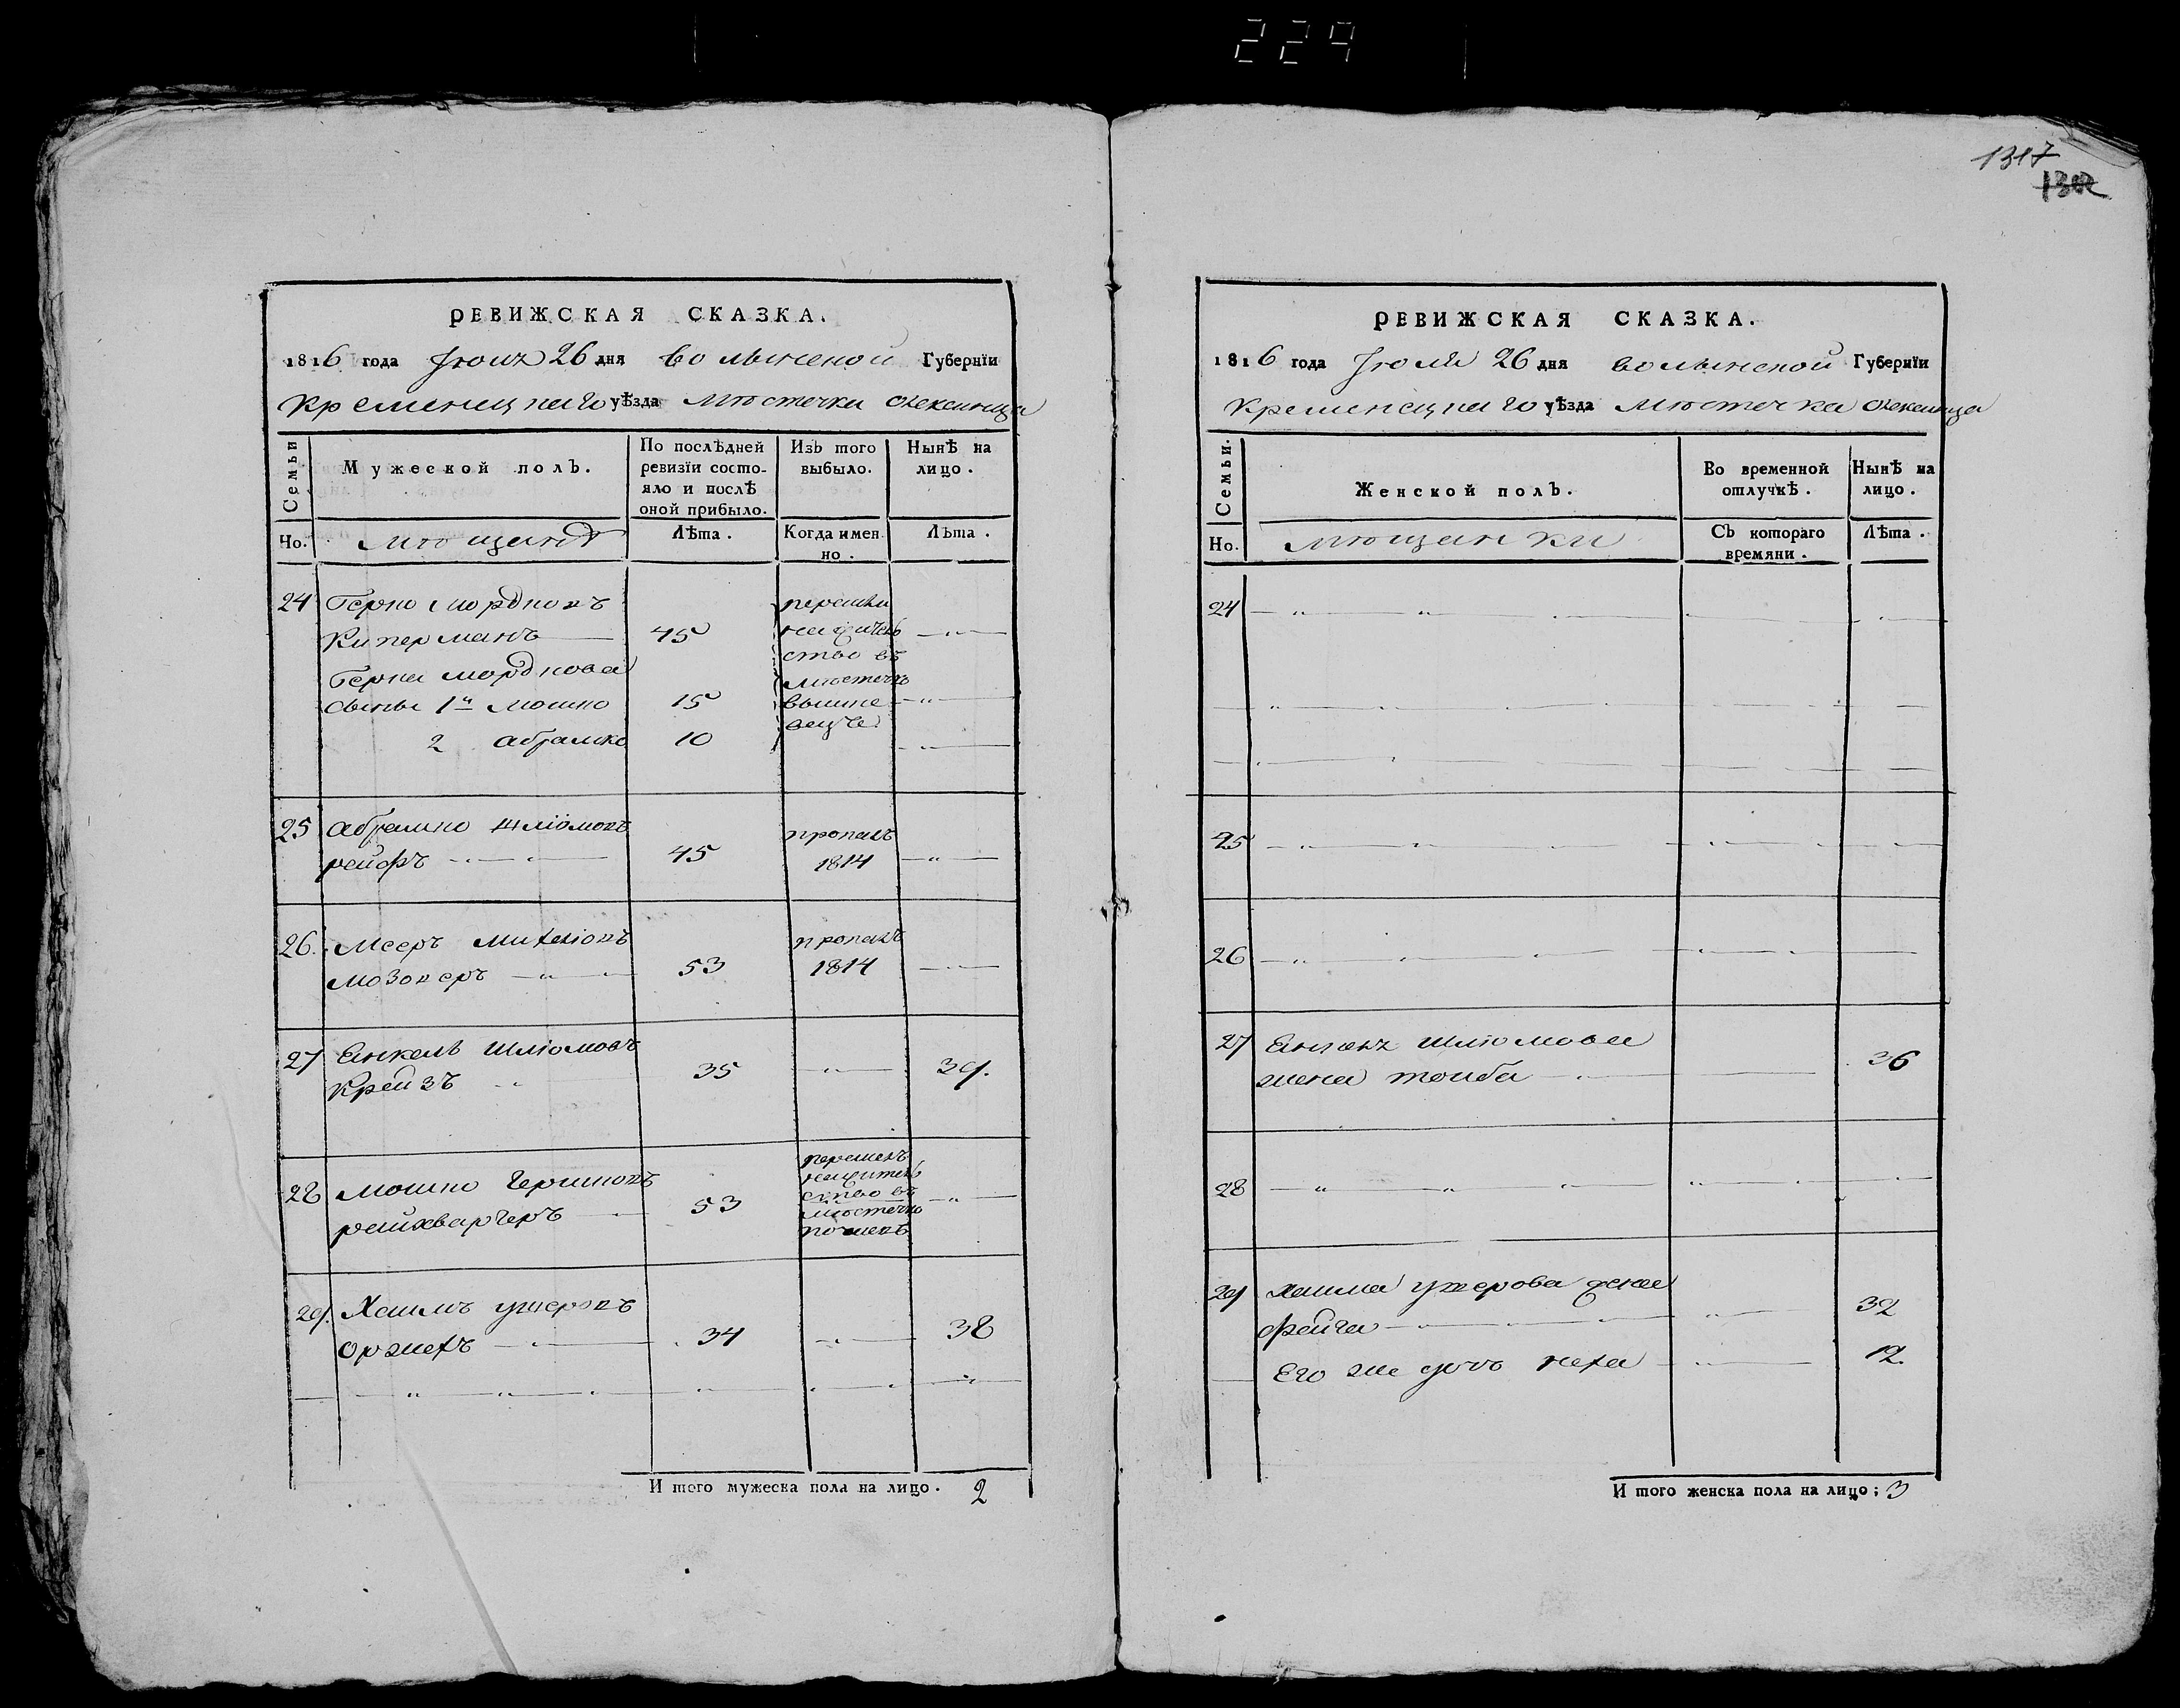 224
1317
1302
РЕВИЖСКАЯ СКАЗКА.
1816 года Іюля 26 дня волынской Губернїи
Кременецкаго уѣзда мѣстечка олексинца
Семьи
Мужеской полъ.
По послѣдней
ревизїи состо-
яло и послѣ
оной прибыло.
Изъ того
выбыло.
Нынѣ на
лицо.
Но.
мѣщанѣ
Лѣта.
Когда имен
но.
Лѣта.
24 Герко Мордковъ
Киперманъ 45
Герка мордкова
сыны 1й мошко 15
2 абрамко 10
перешли
на житель
ство въ
мѣстечк
вышне
вецъ
25 абрамко шліомовъ
рейфъ 45
пропалъ
1814
26. Мееръ
53
пропалъ
1814
27 Енкель шліомовъ
Крейзъ 35 39.
28 мошко гершковъ
53
на житель
ство въ
мѣстечко
29. Хаимъ ушеровъ
34 38
И того мужеска пола на лицо. 2
РЕВИЖСКАЯ СКАЗКА.
1816 года Іюля 26 дня волынской Губернїи
Кременецкаго уѣзда мѣстечка олексинца
Семьи.
Женской полъ.
Во временной
отлучкѣ.
Нынѣ на
лицо.
Но.
мѣщанки
Съ котораго
времяни.
Лѣта.
24
25
26
27 Енкеля шліомова
жена тойба 36
28
29 хаима ушерова жена
фейга 32
Его же дочь неха 12.
И того женска пола на лицо; 3